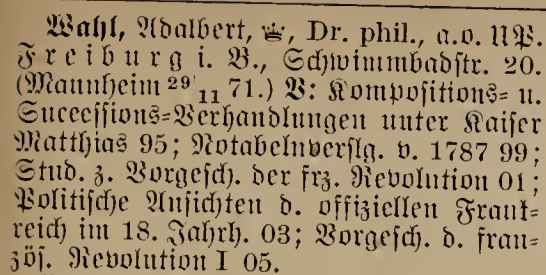 Wahl, Adalbert, ♕, Dr. phil., a.o. UP.
Freiburg i. B., Schwimmbadstr. 20.
(Mannheim 29/11 71.) V: Kompositions- u.
Succeßions-Verhandlungen unter Kaiser
Matthias 95; Notabelnversslg. v. 1787 99;
Stud. z. Vorgesch. der frz. Revolution 01;
Politische Ansichten d. offiziellen Frank-
reich im 18. Jahrh. 03; Vorgesch. d. fran-
zös. Revolution I 05.